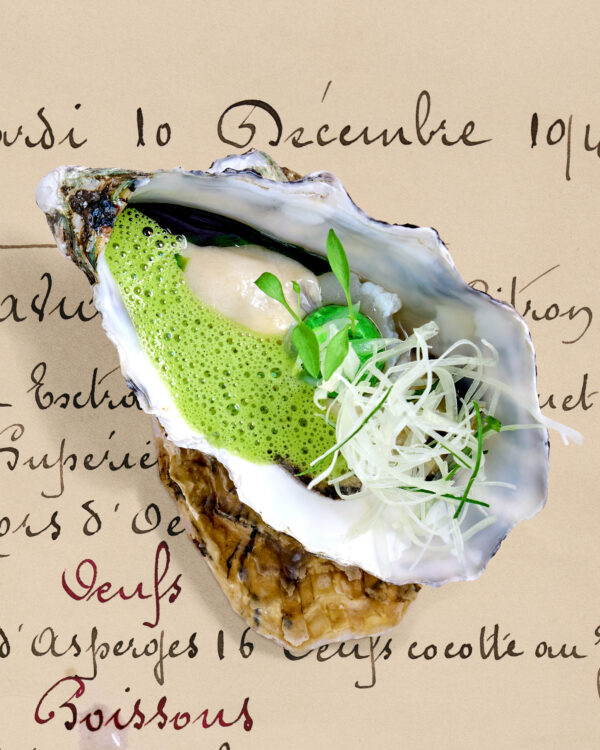 ardi 10 Décembre 19
Citron
Extra
Supérie
ors d'Oe
Oeufs
d'Asperges 16 Oeufs cocotte au
Boissons